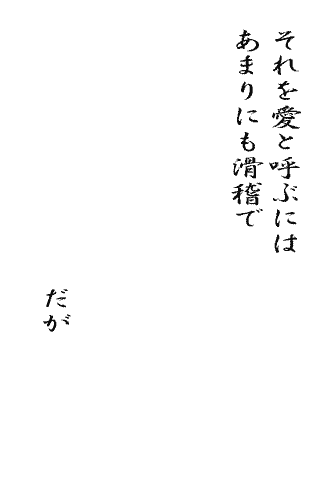 それを愛と呼ぶには
あまりにも滑稽で
だが